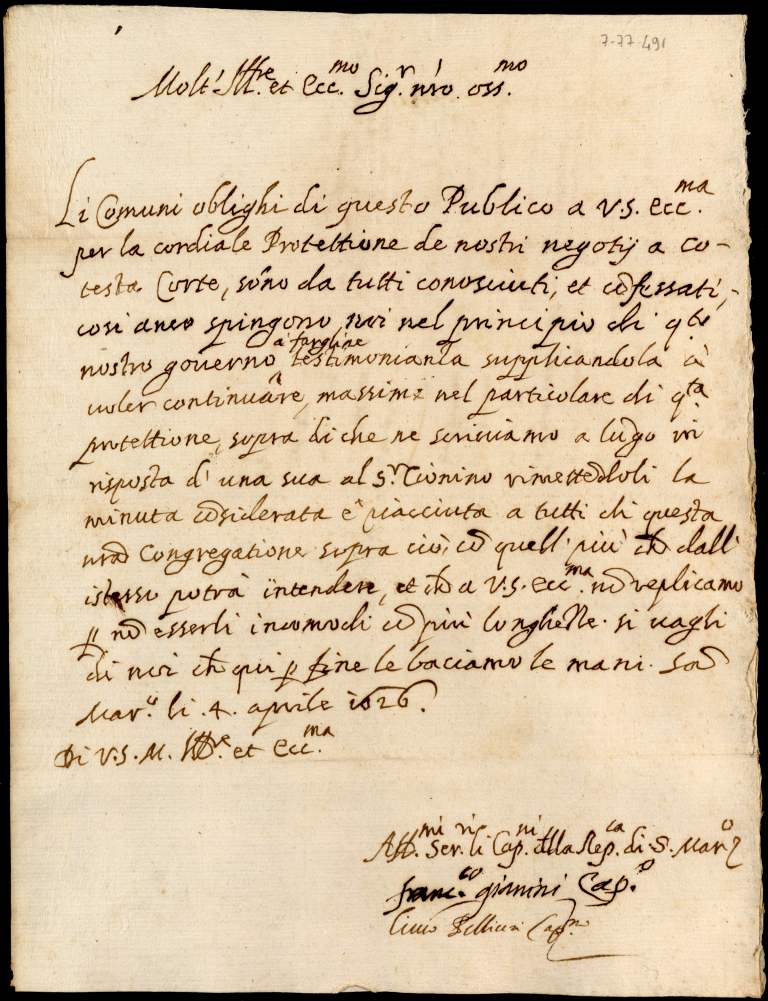 7-77 491
Molt' Ill.re et Ecc.mo Sig.r n'ro oss.mo
Li Comuni oblighi di questo Publico a V.S. Ecc.ma
per la cordiale Protettione de nostri negotij a co-
testa Corte, sono da tutti conosciuti, et cōfessati,
cosi anco spingono noi nel principio di q.to
nostro governo a' fargliae testimonianza supplicandola à
voler continuare, massime nel particolare di q.ta
protettione, sopra di che ne scriviamo a lūgo in
risposta d' una sua al S.r Cionino rimettēdoli la
minuta cōsiderata e piacciuta a tutti di questa
n'rā Congregatione sopra ciò, cō quell' più chē dall'
istesso potrà intendere, et chē a V.S. Ecc.ma nō replicamo
p nō esserli incomodi cō più longhezze. si vagli
di noi chē qui p fine le baciamo le mani. Sā
Mar.o li .4. aprile 1626.
Di V.S. M. Ill.re et Ecc.ma
Aff.mi Ser.ri li Cap.ni della Rep.ca di S. Mar.o
franc.co gianini Cap.o
Cap.no